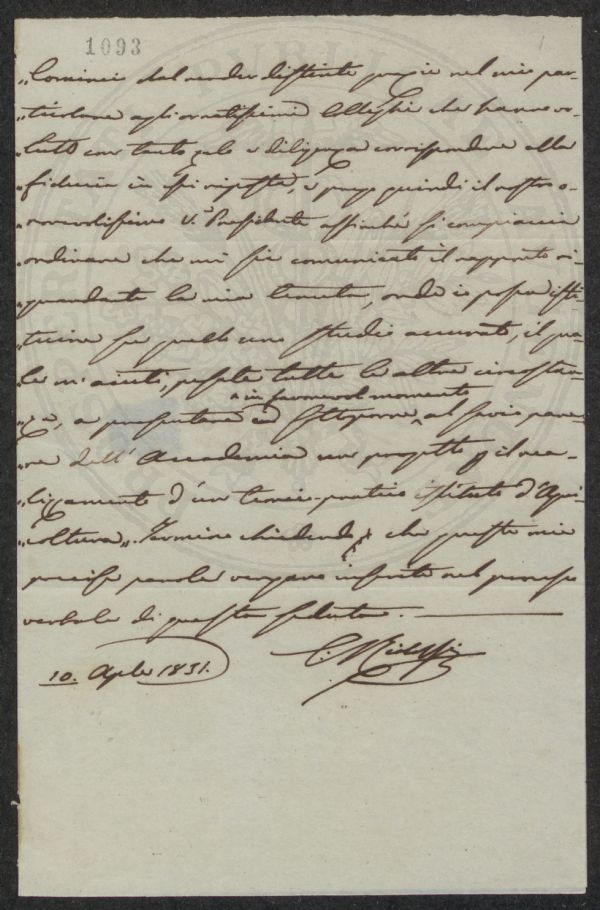 1093
„Comincio dal render distinte grazie nel mio par-
„ticolare agli ornatissimi Colleghi che hanno vo-
„luto con tanto zelo e diligenza corrispondere alla
„fiducia in essi riposta, e prego quindi il nostro o-
„norevolissimo V. Presidente affinchè si compiaccia
„ordinare che mi sia comunicato il rapporto ri-
„guardante la mia tenuta, onde io possa isti-
„tuire su quello uno studio accurato, il qua-
le m'aiuti, pesate tutte le altre circostan-
„ze, a presentare ed esporre ^in favorevol momento^ al savio pare-
re dell' Accademia un progetto pel rea-
„lizzamento d'un teorico-pratico istituto d'Agri-
„coltura„. Termino chiedendo che queste mie
precise parole vengano inserite nel processo
verbale di questa seduta.
10. Aple 1851.
C.